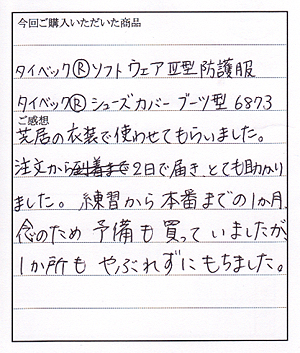 今回ご購入いただいた商品
タイベック®ソフトウェアⅢ型防護服
タイベック®シューズカバー ブーツ型 6873
ご感想
芝居の衣装で使わせてもらいました。
注文から到着まで2日で届き、とても助かり
ました。練習から本番までの1か月、
念のため予備も買っていましたが、
1か所もやぶれずにもちました。